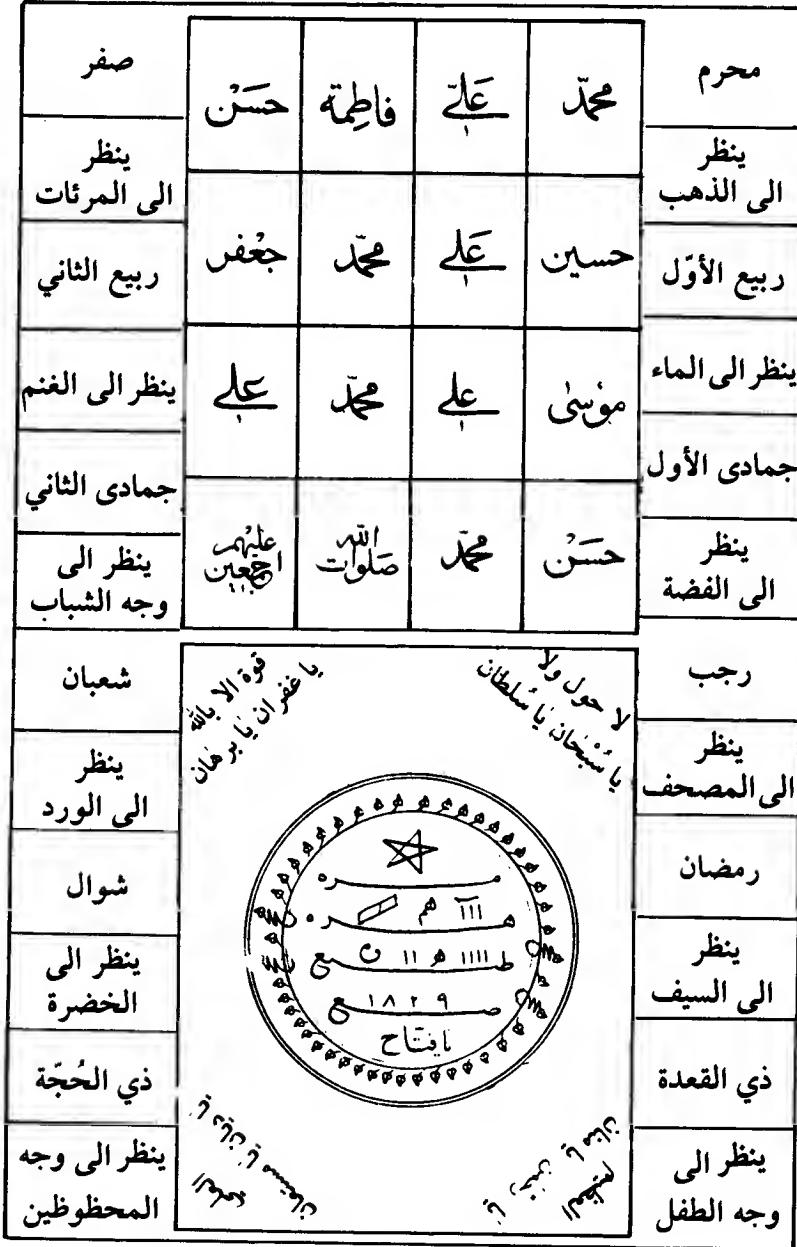 محرم
ينظر
الى الذهب
ربيع الأوّل
ينظر الى الماء
جمادى الأول
ينظر
الى الفضة
رجب
ينظر
الى المصحف
رمضان
ينظر
الى السيف
ذي القعدة
ينظر الى
وجه الطفل
محمّد عَلِيّ فاطِمَة حَسَنْ
حسين عَلِي محمّد جعْفر
موْسىٰ علي محمّد عَلِي
حَسَنْ محمّد صَلَوات الله عليْهم اجمعين
لا حول ولا
يا سُبْحان يا سُلطان
قوة الا بالله
يا غفران يا برهان
ااا هم
طـ اااا هـ اا
صـ ١٨٢٩ ع
يا فتّاح
العلي
العظيم
صفر
ينظر
الى المرئات
ربيع الثاني
ينظر الى الغنم
جمادى الثاني
ينظر الى
وجه الشباب
شعبان
ينظر
الى الورد
شوال
ينظر الى
الخضرة
ذي الحُجّة
ينظر الى وجه
المحظوظين